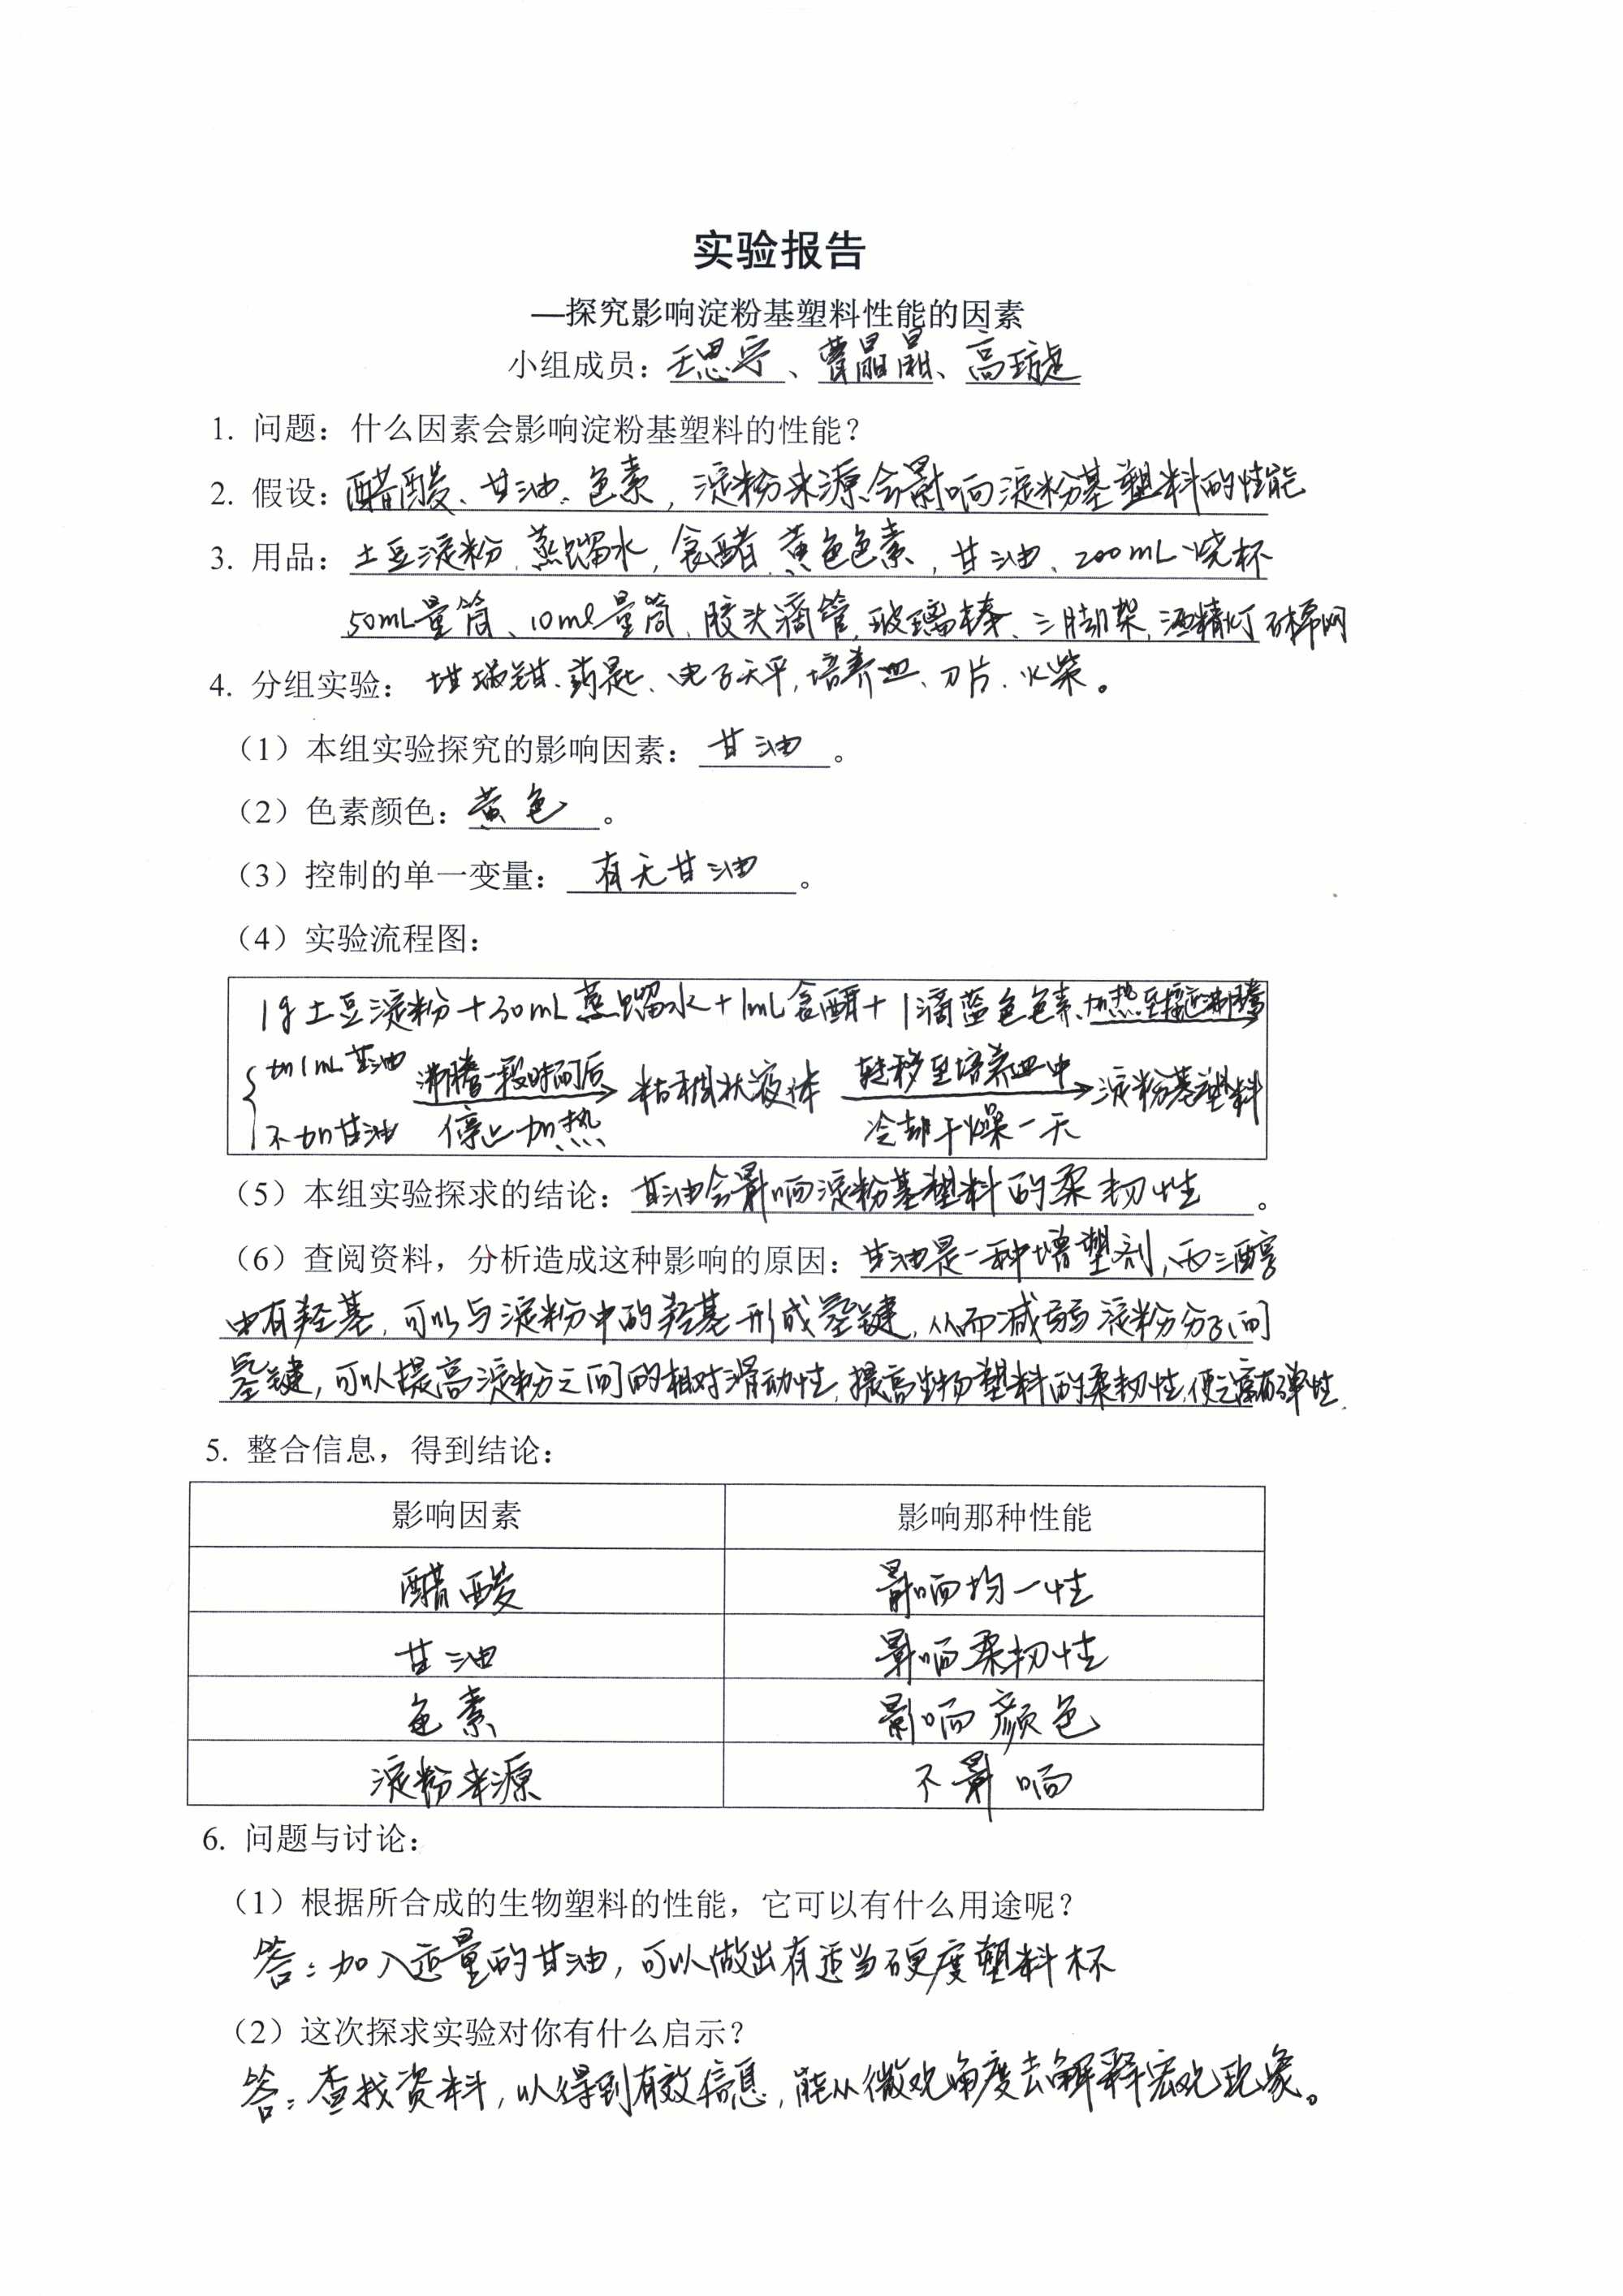 实验报告
—探究影响淀粉基塑料性能的因素
小组成员：王思宁、曹晶晶、高琁
1. 问题：什么因素会影响淀粉基塑料的性能？
2. 假设：醋酸、甘油、色素，淀粉来源会影响淀粉基塑料的性能
3. 用品：土豆淀粉、蒸馏水，食醋、黄色色素，甘油、200mL烧杯
50mL量筒、10ml量筒、胶头滴管、玻璃棒、三脚架、酒精灯 石棉网
4. 分组实验： 坩埚钳、药匙、电子天平，培养皿、刀片、火柴。
（1）本组实验探究的影响因素：甘油。
（2）色素颜色：黄色。
（3）控制的单一变量：有无甘油。
（4）实验流程图：
1g土豆淀粉+30mL蒸馏水+1mL食醋+1滴蓝色色素 加热至接近沸腾
加1mL甘油 沸腾一段时间后 粘稠状液体 转移至培养皿中 淀粉基塑料
不加甘油 停止加热 冷却干燥一天
（5）本组实验探求的结论：甘油会影响淀粉基塑料的柔韧性。
（6）查阅资料，分析造成这种影响的原因：甘油是一种增塑剂，丙三醇
中有羟基，可以与淀粉中的羟基形成氢键，从而减弱淀粉分子间
氢键，可以提高淀粉之间的相对滑动性，提高生物塑料的柔韧性，使之富有弹性.
5. 整合信息，得到结论：
影响因素 影响那种性能
醋酸 影响均一性
甘油 影响柔韧性
色素 影响颜色
淀粉来源 不影响
6. 问题与讨论：
（1）根据所合成的生物塑料的性能，它可以有什么用途呢？
答：加入适量的甘油，可以做出有适当硬度塑料杯
（2）这次探求实验对你有什么启示？
答：查找资料，以得到有效信息，能从微观角度去解释宏观现象。